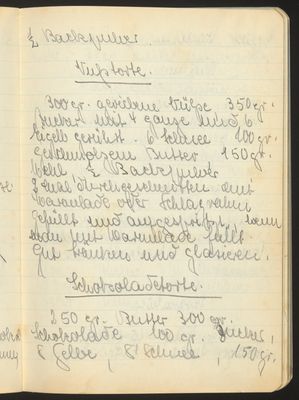 ½ Backpulver.
Nußtorte.
300 gr. geriebene Nüße 350 gr.
Zucker mit 4 ganze und 6
Eigelb gerührt. 6 Schnee 100 gr.
geschmolzene Butter 150 gr.
Mehl ½ Backpulver
2 mal durchgeschnitten mit
Marmelade oder Schlagrahm
gefüllt und wenn
man mit Marmelade füllt
Gut tränken und glasieren.
Schokoladetorte.
250 gr. Butter 300 gr.
Schokolade 100 gr. Zucker,
8 Gelbe, 8 Schnee, 150 gr.